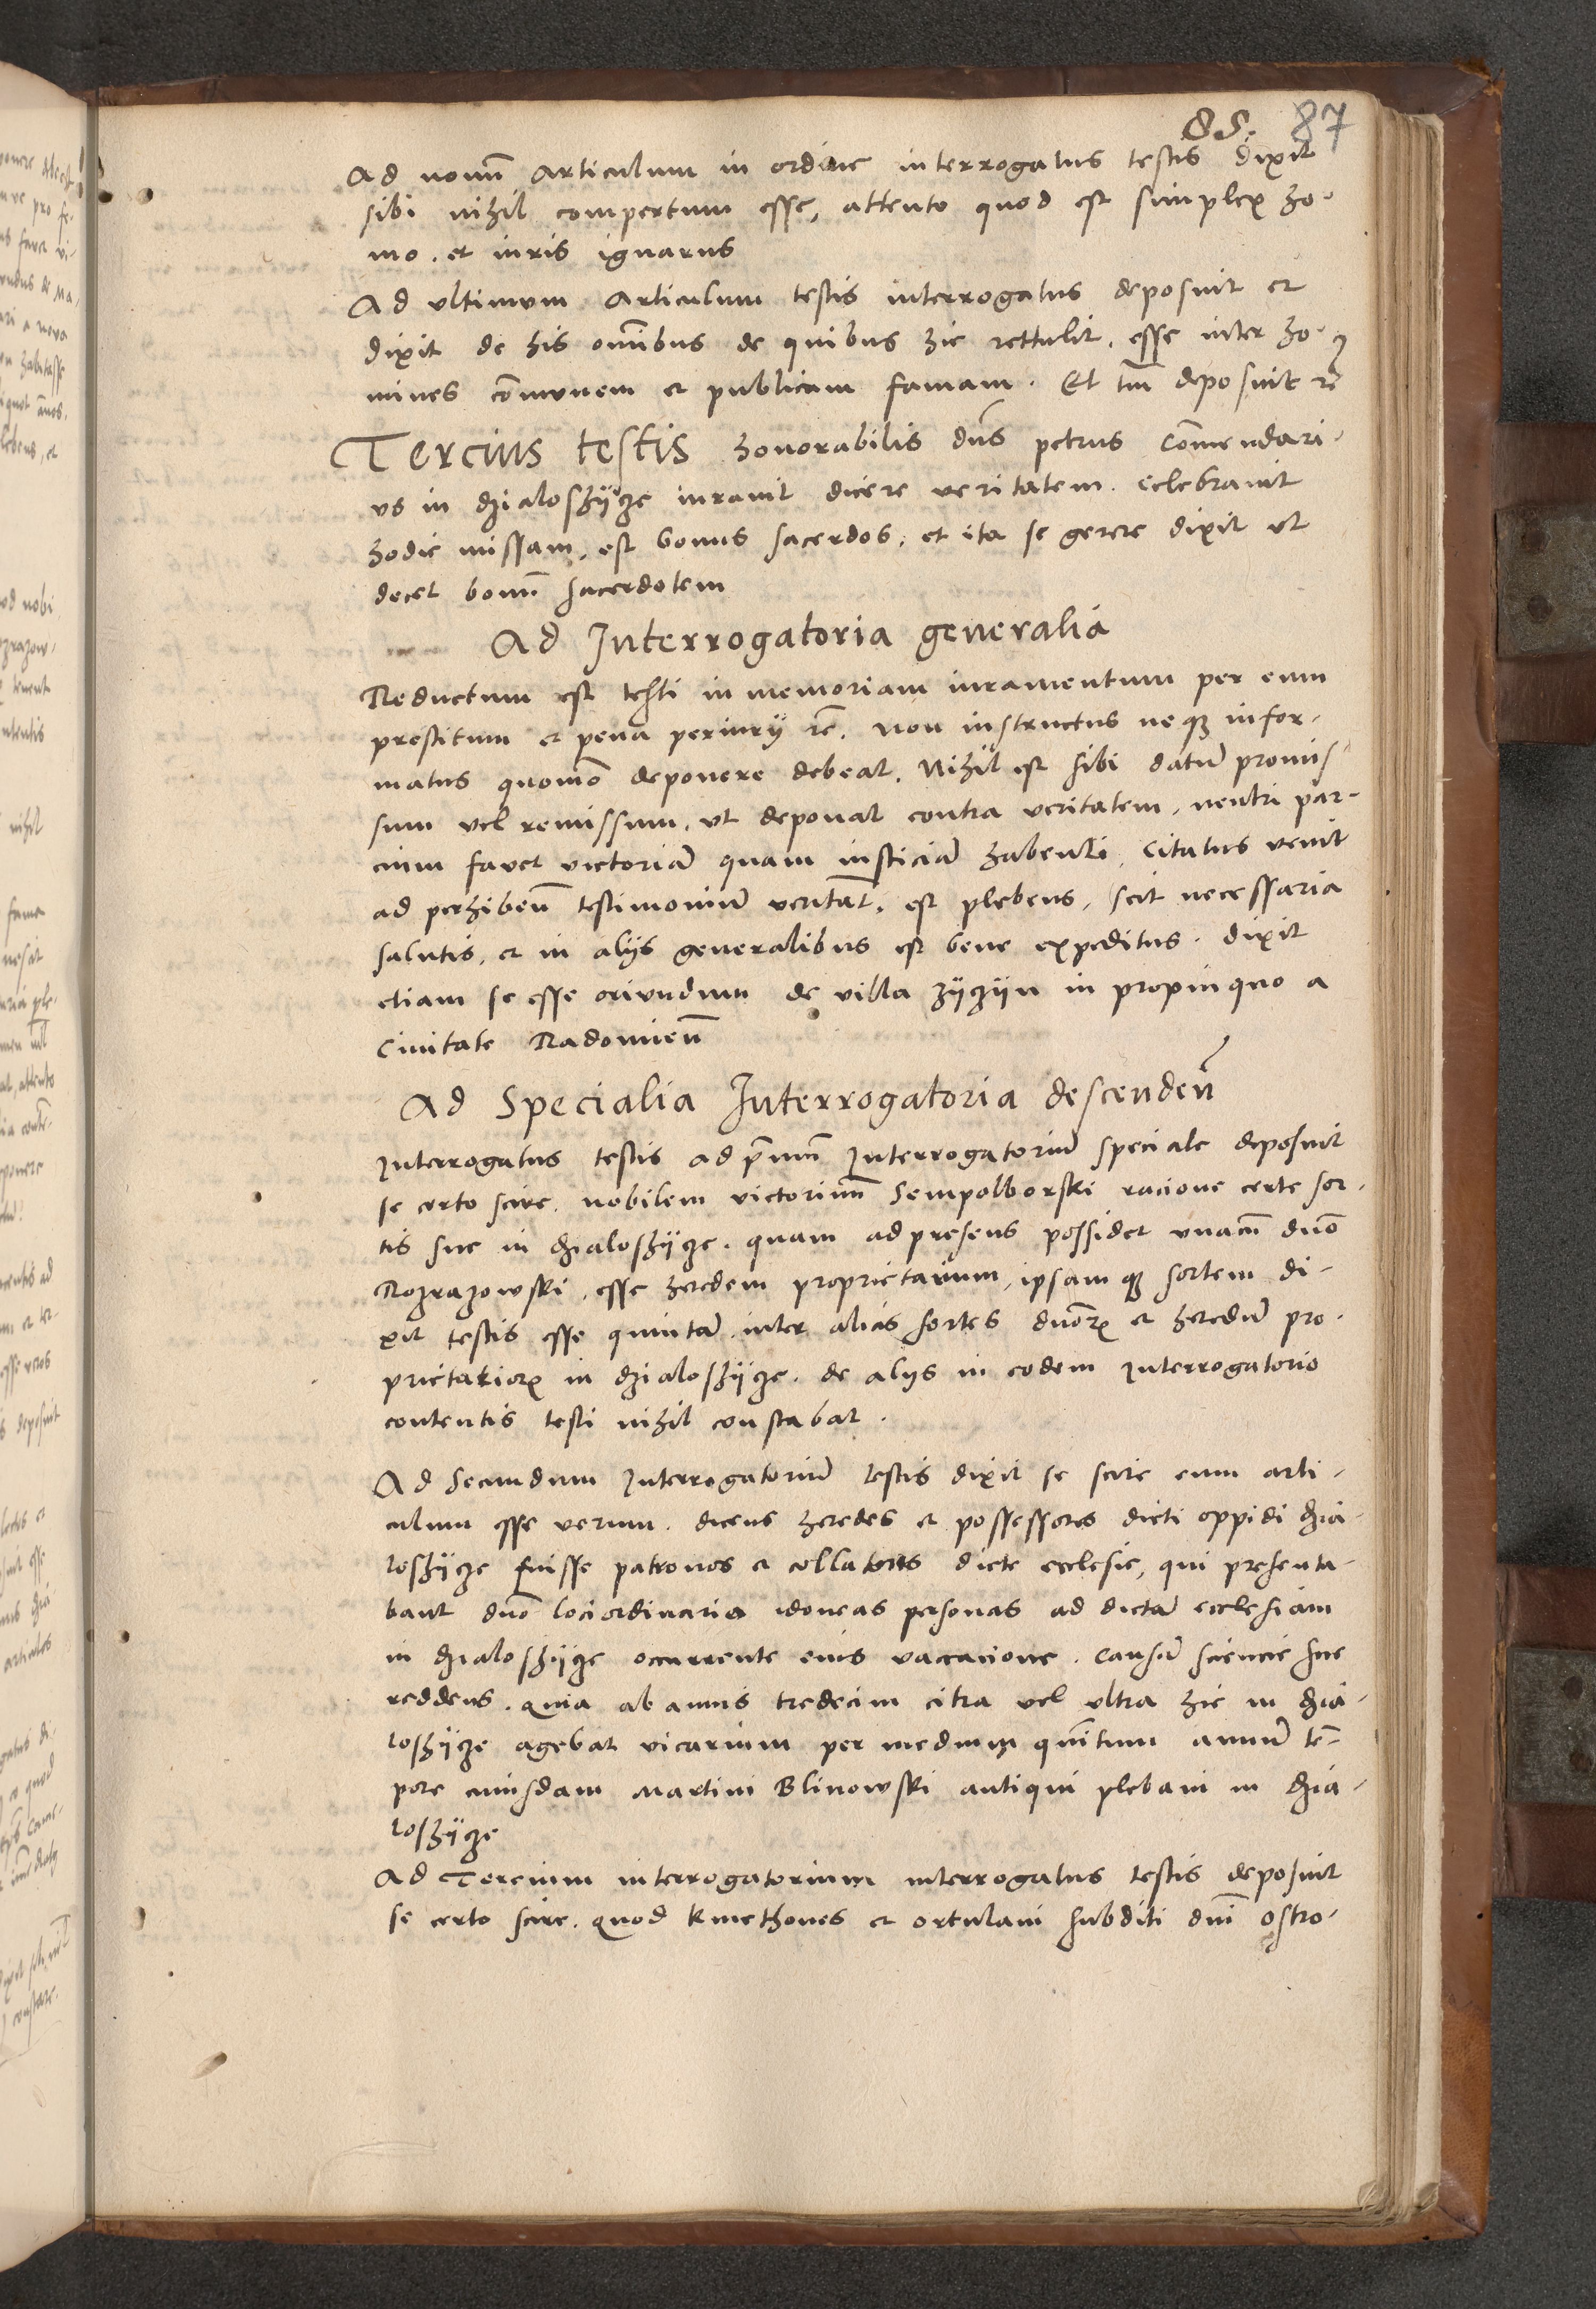 85. 87
Ad nonũ Articulum in ordine interrogatus testis dixit
sibi nihil compertum esse, attento quod est simplex ho-
mo. et iuris ignarus
Ad ultimum Articulum testis interrogatus deposuit et
dixit de his om̃ibus de quibus hic rettulit. esse inter ho-
mines com̃unem et publicam famam. Et tm̃ deposuit rc̃
Tercius testis honorabilis dñs petrus Com̃endari-
us in dzialoshÿcze iuravit dicere veritatem. celebravit
hodie missam, est bonus sacerdos, et ita se gerere dixit ut
decet bonũ sacerdotem
Ad Interrogatoria generalia
Reductum est testi in memoriam iuramentum per eum
prestitum et pena periurij rc̃. non instructus neqꝫ infor-
matus quomõ deponere debeat. Nihil est sibi datũ promis-
sum vel remissum, ut deponat contra veritatem, neutri par-
cium favet victoriã quam iusticiã habenti. Citatus venit
ad perhibeñ testimoniũ veritat̃. est plebeus, scit necessaria
salutis, et in alijs generalibus est bene expeditus. dixit
etiam se esse oriundum de villa zÿczÿn in propinquo a
Civitate Radomieñ
Ad Specialia Interrogatoria descendeñ
Interrogatus testis ad pr̃imũ Interrogatoriũ speciale deposuit
se certo scire. nobilem victorinũ Sempolborski racione certe sor-
tis sue in dzialoshÿcze. quam ad presens possidet unacũ dño
Rozrazowski. esse heredem proprietarium, ipsamqꝫ sortem di-
xit testis esse quintã inter alias sortes dñorꝝ et heredũ pro-
prietariorꝝ in dzialoshÿcze. de alijs in eodem Interrogatorio
contentis testi nihil constabat.
Ad Secundum Interrogatoriũ testis dixit se scire eum arti-
culum esse verum. dicens heredes et possessores dicti oppidi dzia-
loshÿcze fuisse patronos et collatores dicte ecclesie, qui presenta-
bant dño loci ordinario idoneas personas ad dictã ecclesiam
in dzialoshÿcze occurrente eius vaccacione. Causã sciencie sue
reddens. quia ab annis tredecim citra vel ultra hic in dzia-
loshÿcze agebat vicarium per medium quĩtum annũ tẽ-
pore cuiusdam Martini Blinowski antiqui plebani in dzia-
loshÿcze
Ad Tercium interrogatorium interrogatus testis deposuit
se certo scire. quod kmethones et ortulani subditi dñi ostro-